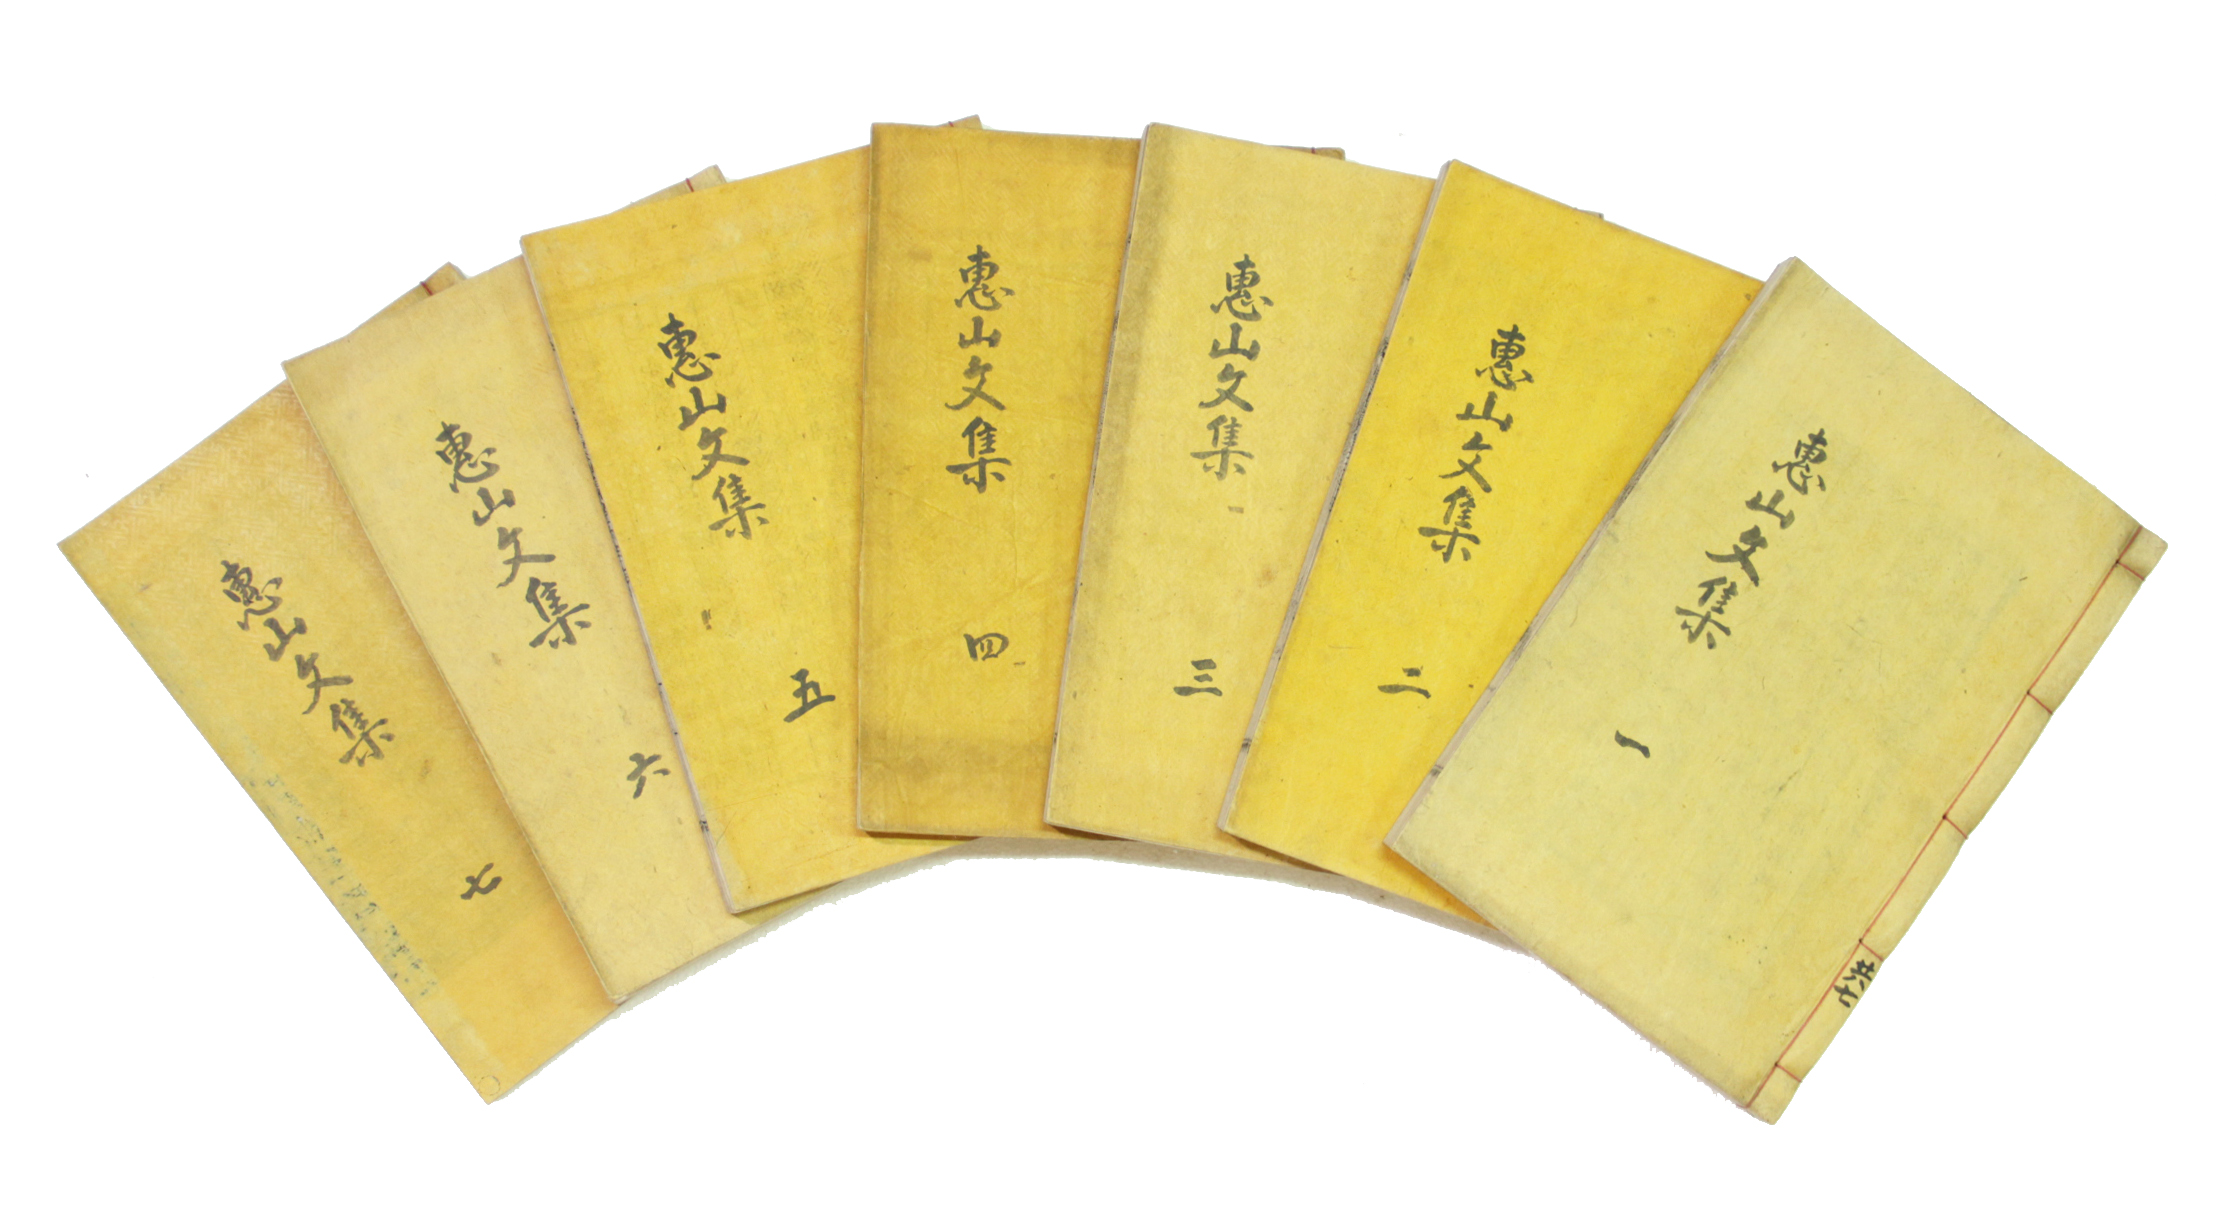 惠山文集 一
共七
惠山文集 二
惠山文集 三
惠山文集 四
惠山文集 五
惠山文集 六
惠山文集 七